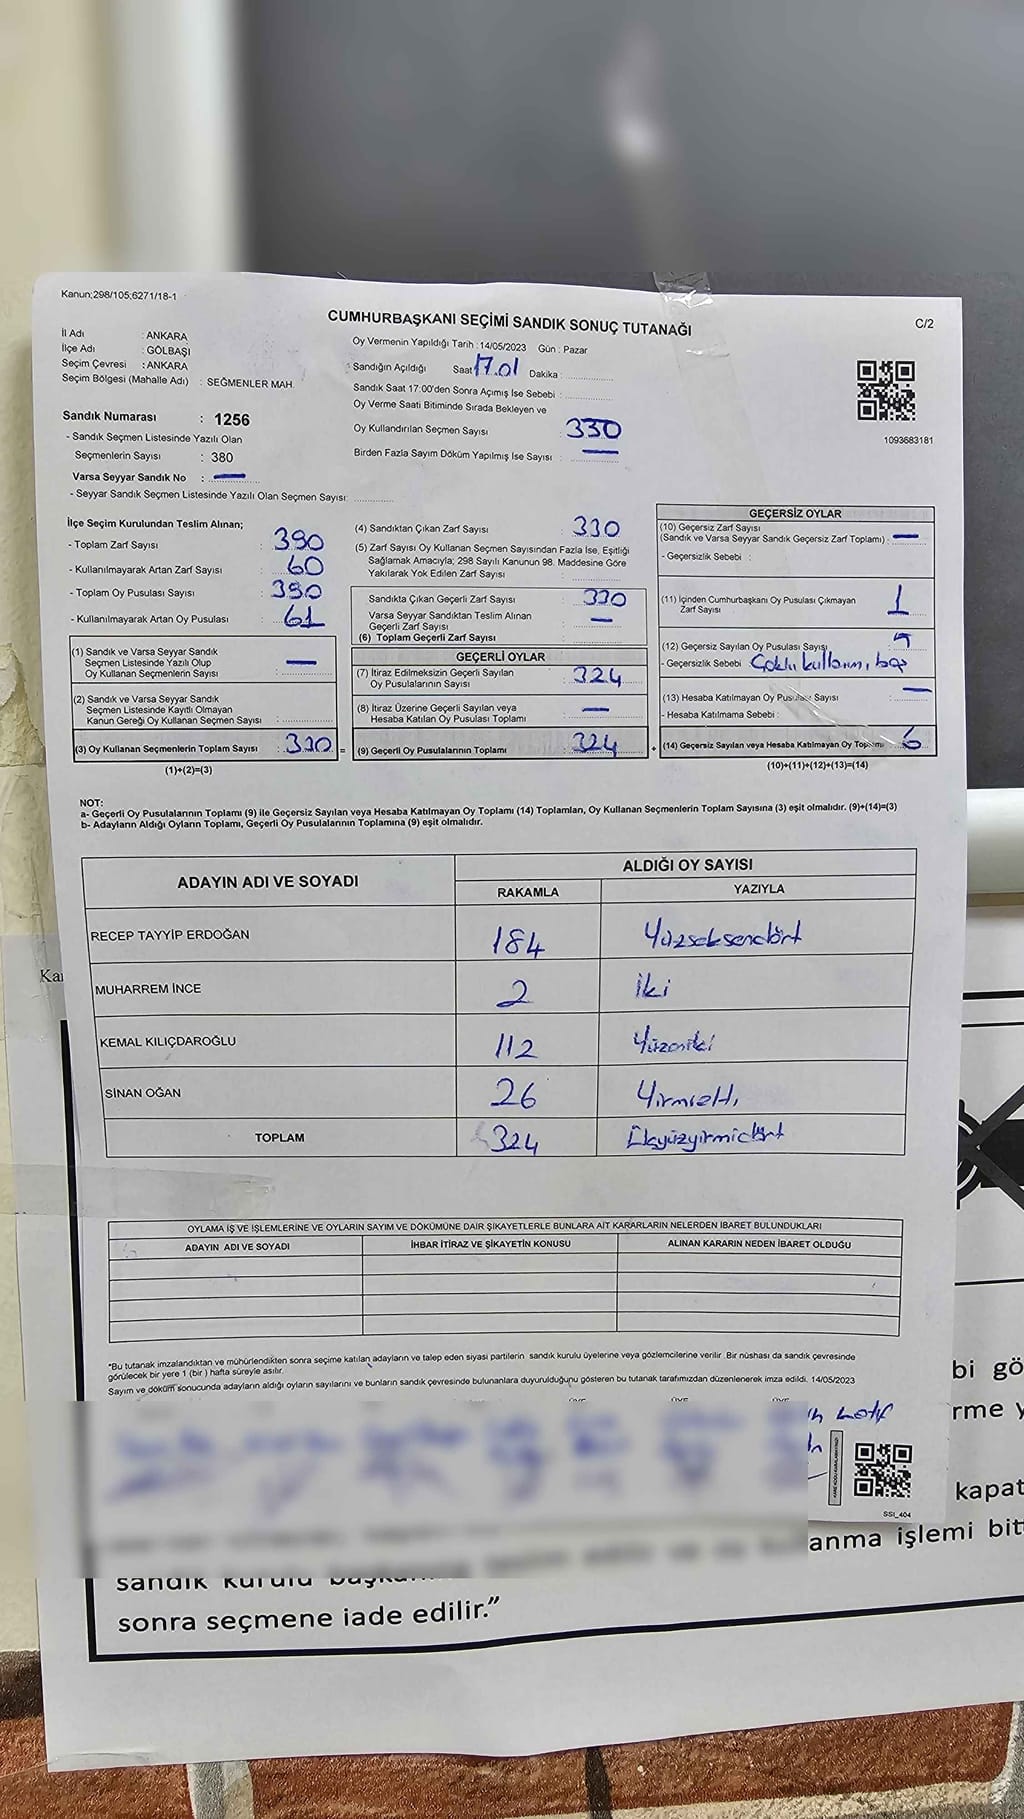 Kanun;298/105;6271/18-1
CUMHURBAŞKANI SEÇİMİ SANDIK SONUÇ TUTANAĞI
C/2
İl Adı : ANKARA
İlçe Adı : GÖLBAŞI
Seçim Çevresi : ANKARA
Seçim Bölgesi (Mahalle Adı) : SEĞMENLER MAH.
Oy Vermenin Yapıldığı Tarih : 14/05/2023 Gün : Pazar
Sandığın Açıldığı Saat 17.01 Dakika :
Sandık Saat 17:00'den Sonra Açımış İse Sebebi :
Oy Verme Saati Bitiminde Sırada Bekleyen ve
Oy Kullandırılan Seçmen Sayısı : 330
Birden Fazla Sayım Döküm Yapılmış İse Sayısı : —
1093683181
Sandık Numarası : 1256
- Sandık Seçmen Listesinde Yazılı Olan
Seçmenlerin Sayısı : 380
Varsa Seyyar Sandık No : —
- Seyyar Sandık Seçmen Listesinde Yazılı Olan Seçmen Sayısı:
İlçe Seçim Kurulundan Teslim Alınan;
- Toplam Zarf Sayısı : 390
- Kullanılmayarak Artan Zarf Sayısı : 60
- Toplam Oy Pusulası Sayısı : 390
- Kullanılmayarak Artan Oy Pusulası : 61
(1) Sandık ve Varsa Seyyar Sandık
Seçmen Listesinde Yazılı Olup
Oy Kullanan Seçmenlerin Sayısı : —
(2) Sandık ve Varsa Seyyar Sandık
Seçmen Listesinde Kayıtlı Olmayan
Kanun Gereği Oy Kullanan Seçmen Sayısı :
(3) Oy Kullanan Seçmenlerin Toplam Sayısı : 330 =
(1)+(2)=(3)
(4) Sandıktan Çıkan Zarf Sayısı : 330
(5) Zarf Sayısı Oy Kullanan Seçmen Sayısından Fazla İse, Eşitliği
Sağlamak Amacıyla; 298 Sayılı Kanunun 98. Maddesine Göre
Yakılarak Yok Edilen Zarf Sayısı :
Sandıkta Çıkan Geçerli Zarf Sayısı : 330
Varsa Seyyar Sandıktan Teslim Alınan
Geçerli Zarf Sayısı : —
(6) Toplam Geçerli Zarf Sayısı :
GEÇERLİ OYLAR
(7) İtiraz Edilmeksizin Geçerli Sayılan
Oy Pusulalarının Sayısı : 324
(8) İtiraz Üzerine Geçerli Sayılan veya
Hesaba Katılan Oy Pusulası Toplamı : —
(9) Geçerli Oy Pusulalarının Toplamı : 324 +
GEÇERSİZ OYLAR
(10) Geçersiz Zarf Sayısı
(Sandık ve Varsa Seyyar Sandık Geçersiz Zarf Toplamı) : —
- Geçersizlik Sebebi :
(11) İçinden Cumhurbaşkanı Oy Pusulası Çıkmayan
Zarf Sayısı : 1
(12) Geçersiz Sayılan Oy Pusulası Sayısı
- Geçersizlik Sebebi
(13) Hesaba Katılmayan Oy Pusulası Sayısı : —
- Hesaba Katılmama Sebebi :
(14) Geçersiz Sayılan veya Hesaba Katılmayan Oy Toplamı : 6
(10)+(11)+(12)+(13)=(14)
NOT:
a- Geçerli Oy Pusulalarının Toplamı (9) ile Geçersiz Sayılan veya Hesaba Katılmayan Oy Toplamı (14) Toplamları, Oy Kullanan Seçmenlerin Toplam Sayısına (3) eşit olmalıdır. (9)+(14)=(3)
b- Adayların Aldığı Oyların Toplamı, Geçerli Oy Pusulalarının Toplamına (9) eşit olmalıdır.
ADAYIN ADI VE SOYADI
ALDIĞI OY SAYISI
RAKAMLA YAZIYLA
RECEP TAYYİP ERDOĞAN 184 Yüzseksendört
MUHARREM İNCE 2 İki
KEMAL KILIÇDAROĞLU 112 Yüzoniki
SİNAN OĞAN 26 Yirmialtı
TOPLAM 324 Üçyüzyirmidört
OYLAMA İŞ VE İŞLEMLERİNE VE OYLARIN SAYIM VE DÖKÜMÜNE DAİR ŞİKAYETLERLE BUNLARA AİT KARARLARIN NELERDEN İBARET BULUNDUKLARI
ADAYIN ADI VE SOYADI İHBAR İTİRAZ VE ŞİKAYETİN KONUSU ALINAN KARARIN NEDEN İBARET OLDUĞU
*Bu tutanak imzalandıktan ve mühürlendikten sonra seçime katılan adayların ve talep eden siyasi partilerin sandık kurulu üyelerine veya gözlemcilerine verilir. Bir nüshası da sandık çevresinde
görülecek bir yere 1 (bir) hafta süreyle asılır.
Sayım ve döküm sonucunda adayların aldığı oyların sayılarını ve bunların sandık çevresinde bulunanlara duyurulduğunu gösteren bu tutanak tarafımızdan düzenlenerek imza edildi. 14/05/2023
SSI_404
bi gö
rme y
kapat
anma işlemi bit
sandık kurulu
sonra seçmene iade edilir.”